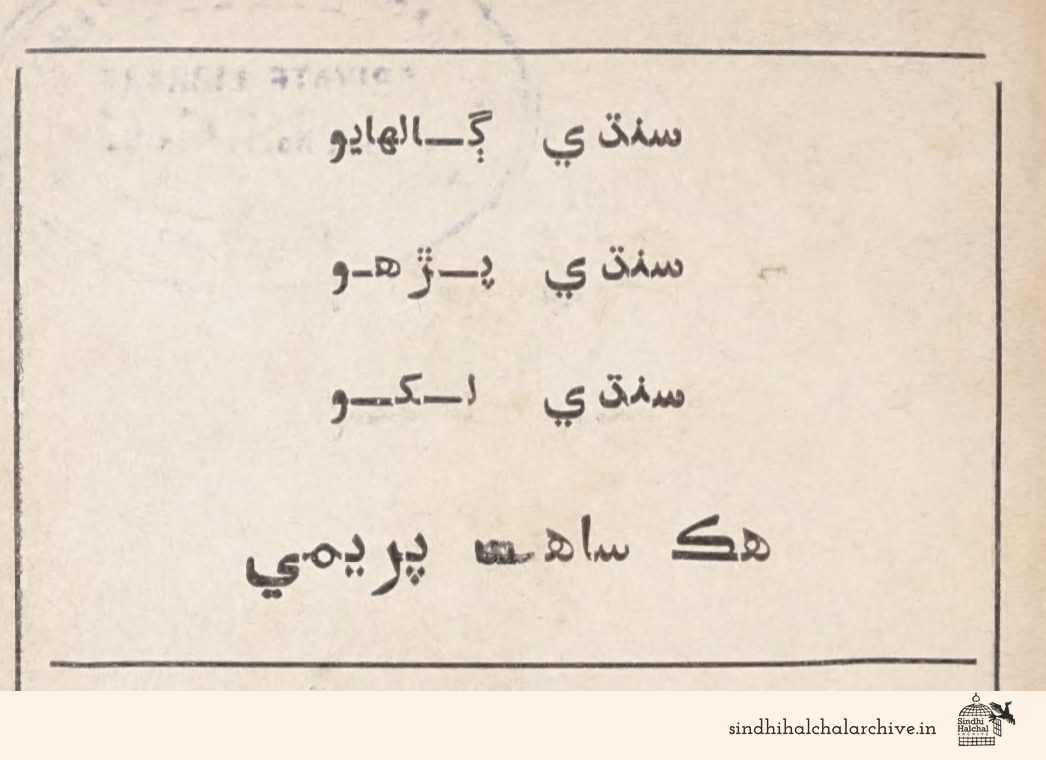 سنڌي ڳالهايو
سنڌي پڙهو
سنڌي لکو
هڪ ساهت پريمي
sindhihalchalarchive.in
Sindhi
Halchal
ARCHIVE